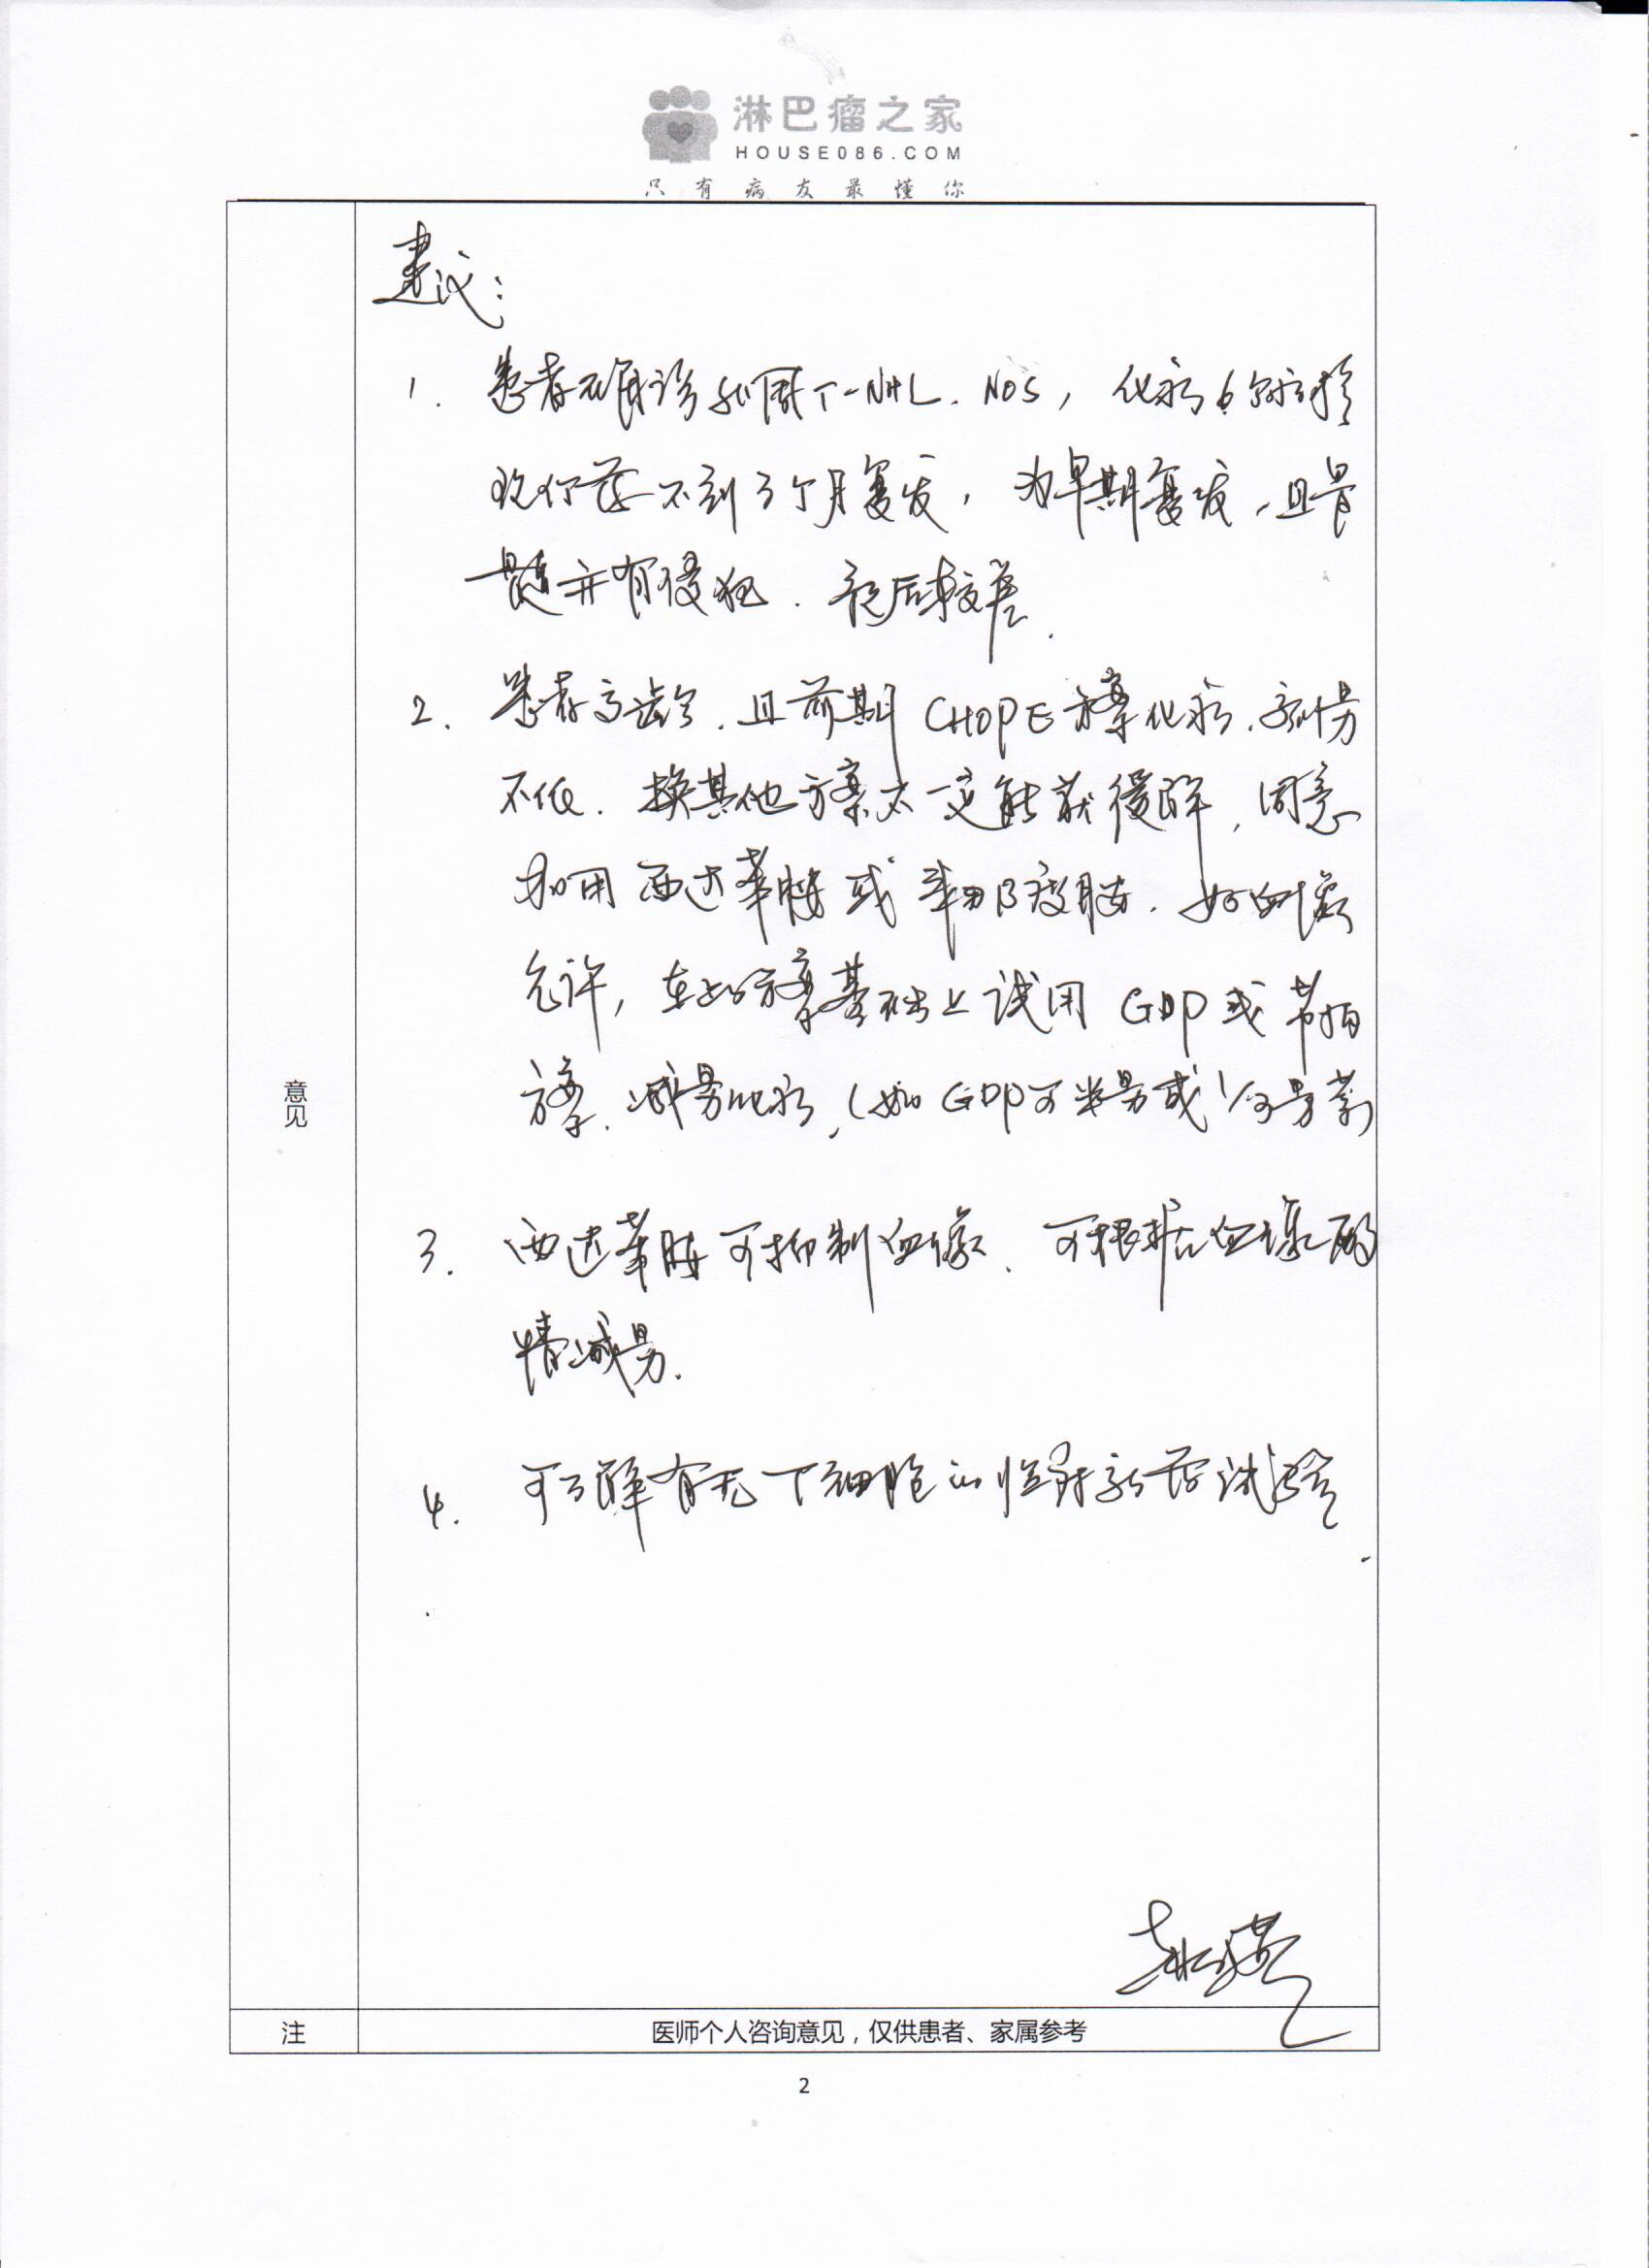 淋巴瘤之家
HOUSE086.COM
只有病友最懂你
建议:
1. 患者确诊外周T-NHL, NOS, 化疗6疗程
停药不到3个月复发, 为早期复发, 且骨
髓亦有侵犯. 预后较差.
2. 患者高龄. 且前期CHOPE方案化疗. 剂量
不低. 换其他方案不一定能获缓解, 同意
加用西达苯胺或来那度胺. 如血像
允许, 在此方案基础上试用GDP或节拍
方案. 减量化疗, (如GDP可半量或1/3量
3. 西达苯胺可抑制血像. 可根据血像酌
情减量.
4. 可了解有无T细胞的临床新药试验.
意见
注
医师个人咨询意见，仅供患者、家属参考
2